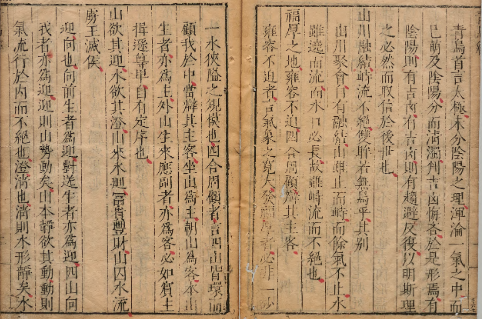 青烏首言太極未分陰陽之理渾淪一氣之中而
已萌及陰陽分而清濁判吉凶悔吝於是形焉有
陰陽則有吉凶有吉凶則有趨避反復以明斯理
之必然而取信於後世也
山川融結峙流不絕雙眸若無烏乎其別
山川聚會自有融結山雖止而峙而餘氣不止水
雖遶而流而水口必長故雖峙流而不絕也
福厚之地雍容不迫四合周顧辨其主客
雍容不迫者言氣象之寬大福厚者必非一山
一水狹隘之規模也四合周顧者言四山皆環向而
顧我於中當辨其主客坐山為主朝山為客本山
生者亦為主外山生來應副者亦為客必如賓主
揖遜尊卑自有定序也
山欲其迎水欲其澄山來水回逼貴豐財山囚水流
虜王滅侯
迎向也向前生者為迎斡遶生者亦為迎四山向
我者亦為迎迎則山勢動矣山本靜欲其動動則
氣流行於內而不絕也澄清也清則水形靜矣水